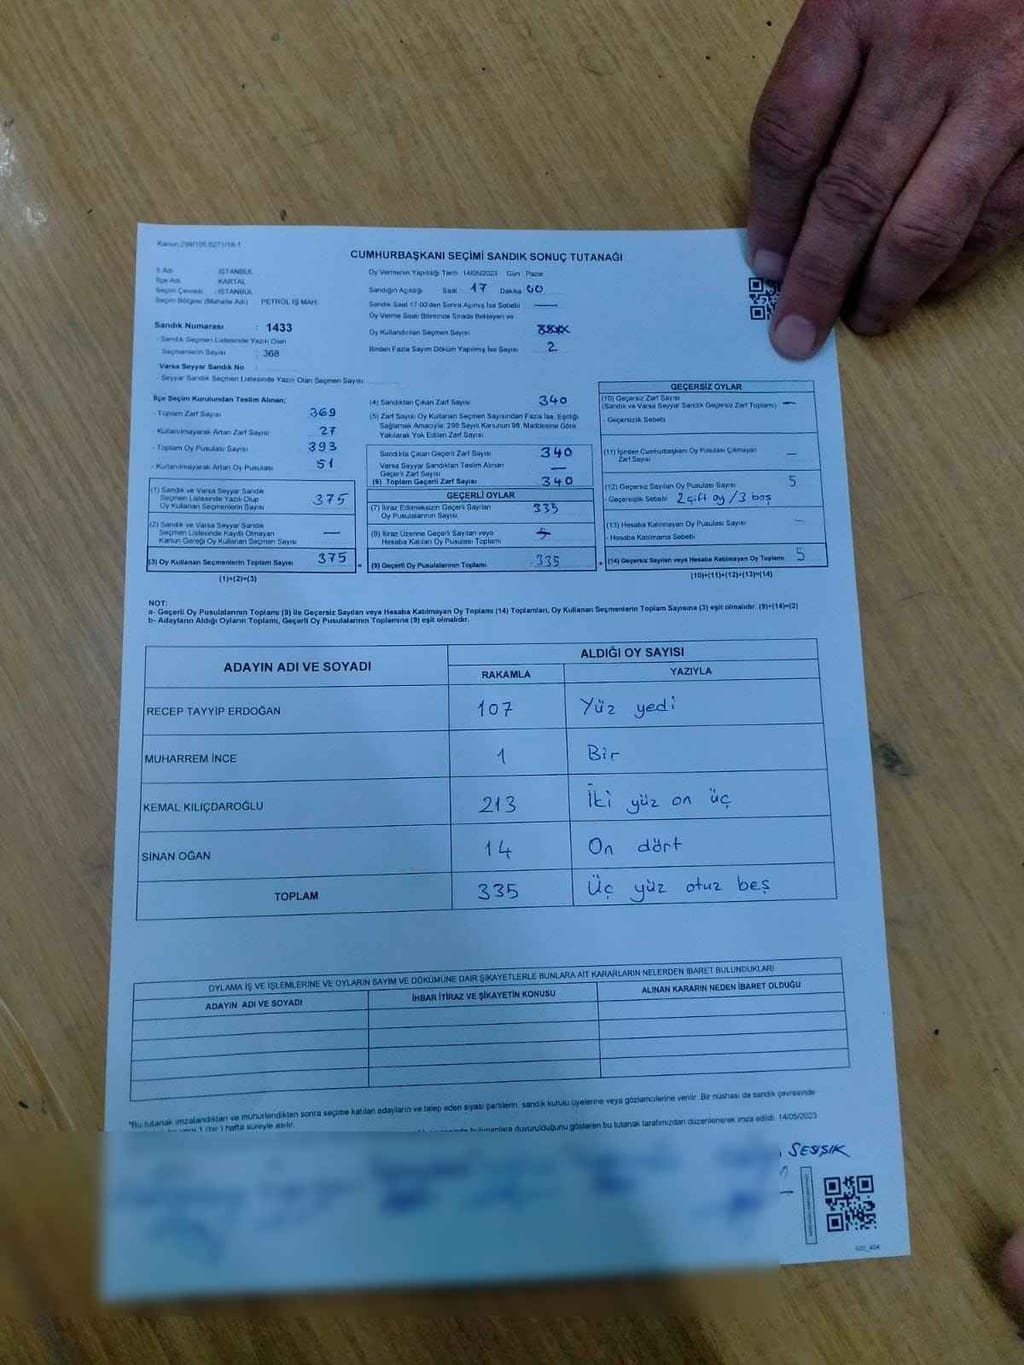 Kanun:298/105 6271/18-1
CUMHURBAŞKANI SEÇİMİ SANDIK SONUÇ TUTANAĞI
İl Adı : İSTANBUL
İlçe Adı : KARTAL
Seçim Çevresi : İSTANBUL
Seçim Bölgesi (Mahalle Adı) : PETROL İŞ MAH.
Oy Vermenin Yapıldığı Tarih : 14/05/2023 Gün : Pazar
Sandığın Açıldığı Saat : 17 Dakika : 00
Sandık Saat 17:00'den Sonra Açılmış İse Sebebi : —
Oy Verme Saati Bitiminde Sırada Bekleyen ve
Oy Kullandırılan Seçmen Sayısı
Birden Fazla Sayım Döküm Yapılmış İse Sayısı : 2
Sandık Numarası : 1433
- Sandık Seçmen Listesinde Yazılı Olan
Seçmenlerin Sayısı : 368
Varsa Seyyar Sandık No :
- Seyyar Sandık Seçmen Listesinde Yazılı Olan Seçmen Sayısı :
İlçe Seçim Kurulundan Teslim Alınan;
- Toplam Zarf Sayısı : 369
- Kullanılmayarak Artan Zarf Sayısı : 27
- Toplam Oy Pusulası Sayısı : 393
- Kullanılmayarak Artan Oy Pusulası : 51
(1) Sandık ve Varsa Seyyar Sandık
Seçmen Listesinde Yazılı Olup
Oy Kullanan Seçmenlerin Sayısı 375
(2) Sandık ve Varsa Seyyar Sandık
Seçmen Listesinde Kayıtlı Olmayan
Kanun Gereği Oy Kullanan Seçmen Sayısı —
(3) Oy Kullanan Seçmenlerin Toplam Sayısı 375
(1)+(2)=(3)
(4) Sandıktan Çıkan Zarf Sayısı : 340
(5) Zarf Sayısı Oy Kullanan Seçmen Sayısından Fazla İse, Eşitliği
Sağlamak Amacıyla; 298 Sayılı Kanunun 98. Maddesine Göre
Yakılarak Yok Edilen Zarf Sayısı :
Sandıkta Çıkan Geçerli Zarf Sayısı : 340
Varsa Seyyar Sandıktan Teslim Alınan
Geçerli Zarf Sayısı : —
(6) Toplam Geçerli Zarf Sayısı : 340
GEÇERLİ OYLAR
(7) İtiraz Edilmeksizin Geçerli Sayılan
Oy Pusulalarının Sayısı : 335
(8) İtiraz Üzerine Geçerli Sayılan veya
Hesaba Katılan Oy Pusulası Toplamı :
(9) Geçerli Oy Pusulalarının Toplamı : 335
GEÇERSİZ OYLAR
(10) Geçersiz Zarf Sayısı
(Sandık ve Varsa Seyyar Sandık Geçersiz Zarf Toplamı) : —
- Geçersizlik Sebebi :
(11) İçinden Cumhurbaşkanı Oy Pusulası Çıkmayan
Zarf Sayısı : —
(12) Geçersiz Sayılan Oy Pusulası Sayısı : 5
- Geçersizlik Sebebi : 2 çift oy / 3 boş
(13) Hesaba Katılmayan Oy Pusulası Sayısı : —
- Hesaba Katılmama Sebebi :
(14) Geçersiz Sayılan veya Hesaba Katılmayan Oy Toplamı : 5
(10)+(11)+(12)+(13)=(14)
NOT:
a- Geçerli Oy Pusulalarının Toplamı (9) ile Geçersiz Sayılan veya Hesaba Katılmayan Oy Toplamı (14) Toplamları, Oy Kullanan Seçmenlerin Toplam Sayısına (3) eşit olmalıdır. (9)+(14)=(3)
b- Adayların Aldığı Oyların Toplamı, Geçerli Oy Pusulalarının Toplamına (9) eşit olmalıdır.
ADAYIN ADI VE SOYADI ALDIĞI OY SAYISI
RAKAMLA YAZIYLA
RECEP TAYYİP ERDOĞAN 107 Yüz yedi
MUHARREM İNCE 1 Bir
KEMAL KILIÇDAROĞLU 213 İki yüz on üç
SİNAN OĞAN 14 On dört
TOPLAM 335 Üç yüz otuz beş
OYLAMA İŞ VE İŞLEMLERİNE VE OYLARIN SAYIM VE DÖKÜMÜNE DAİR ŞİKAYETLERLE BUNLARA AİT KARARLARIN NELERDEN İBARET BULUNDUKLARI
ADAYIN ADI VE SOYADI İHBAR İTİRAZ VE ŞİKAYETİN KONUSU ALINAN KARARIN NEDEN İBARET OLDUĞU
*Bu tutanak imzalandıktan ve mühürlendikten sonra seçime katılan adayların ve talep eden siyasi partilerin sandık kurulu üyelerine veya gözlemcilerine verilir. Bir nüshası da sandık çevresinde
1 (bir) hafta süreyle asılır. bulunanlara duyurulduğunu gösteren bu tutanak tarafımızdan düzenlenerek imza edildi. 14/05/2023